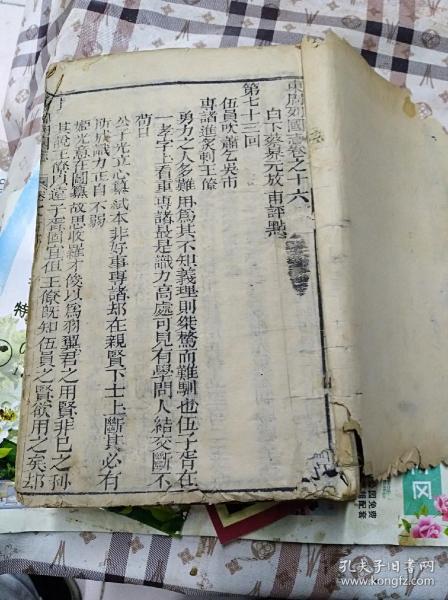 東周列國志卷之十六
白下蔡昇元放甫評點
第七十三回
伍員吹簫乞吳市
專諸進炙刺王僚
勇力之人多難用為其不知義理則桀驁而難馴也伍子胥在
一孝字上看重專諸最是識力高處可見有學問人結交斷不
苟且
公子光立心篡弒本非好事專諸却在親賢下士上斷其必有
所成識力正自不弱
姬光意在圖篡故思收羅才俊以為羽翼君之用賢非已之利
其說王僚以遠子胥固宜但王僚既知伍員之賢欲用之矣却
特
冈
园免费
配套
孔夫子旧书网
www.kongfz.com